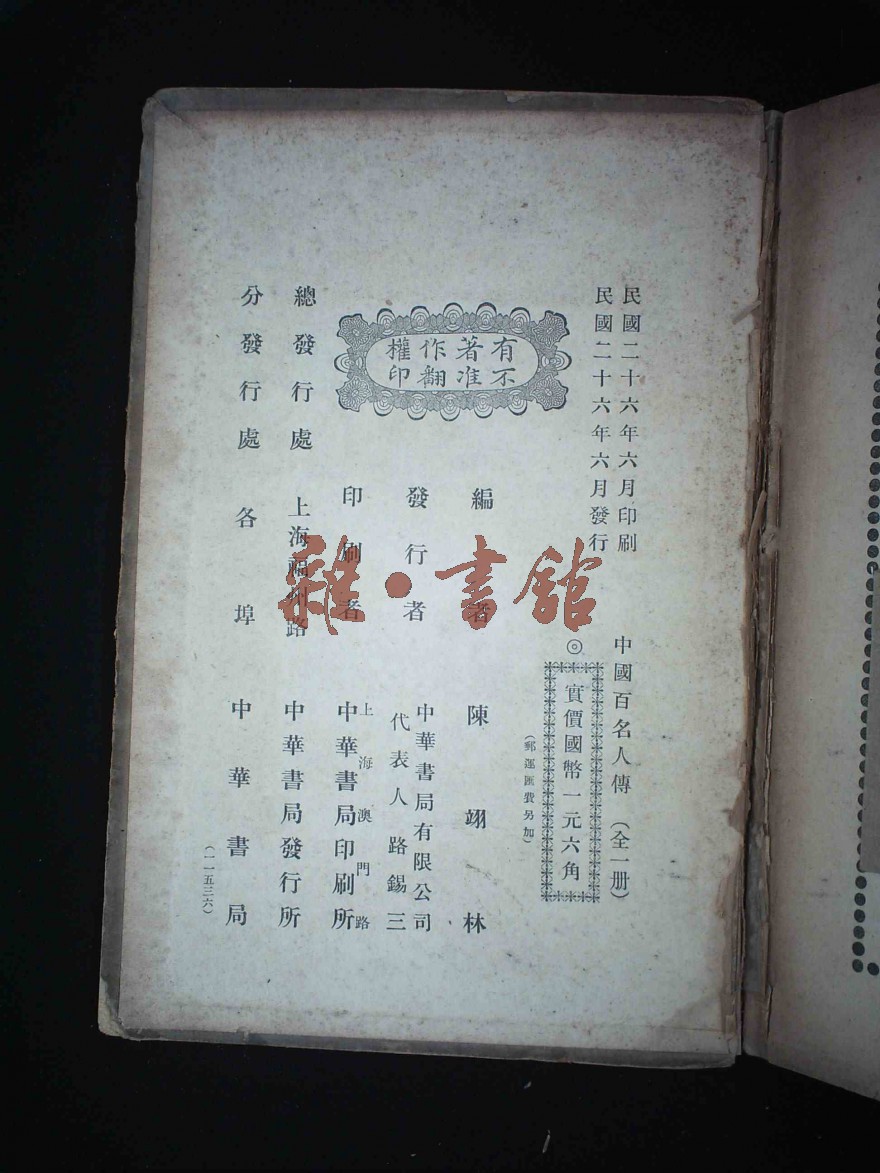 民國二十六年六月印刷
民國二十六年六月發行
中國百名人傳（全一册）
◎實價國幣一元六角
（郵運匯費另加）
有著作權
不准翻印
編者 陳翊林
發行者 中華書局有限公司
代表人路錫三
印刷者 上海澳門路
中華書局印刷所
總發行處 上海福州路 中華書局發行所
分發行處 各埠 中華書局
（一一五三六）
雜·書館